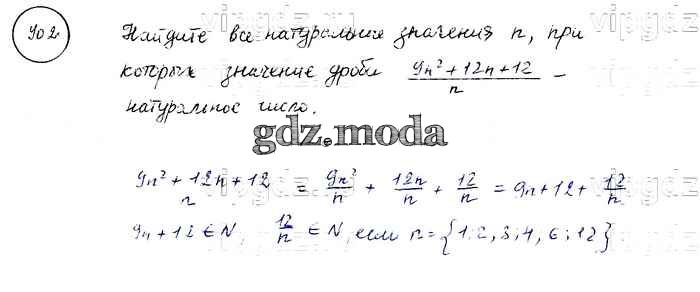 702
Найдите все натуральные значения n, при
которых значение дроби (9n² + 12n + 12)/n –
натуральное число.
gdz.moda
(9n² + 12n + 12)/n = 9n²/n + 12n/n + 12/n = 9n + 12 + 12/n
9n + 12 ∈ N, 12/n ∈ N, если n = {1; 2; 3; 4; 6; 12}